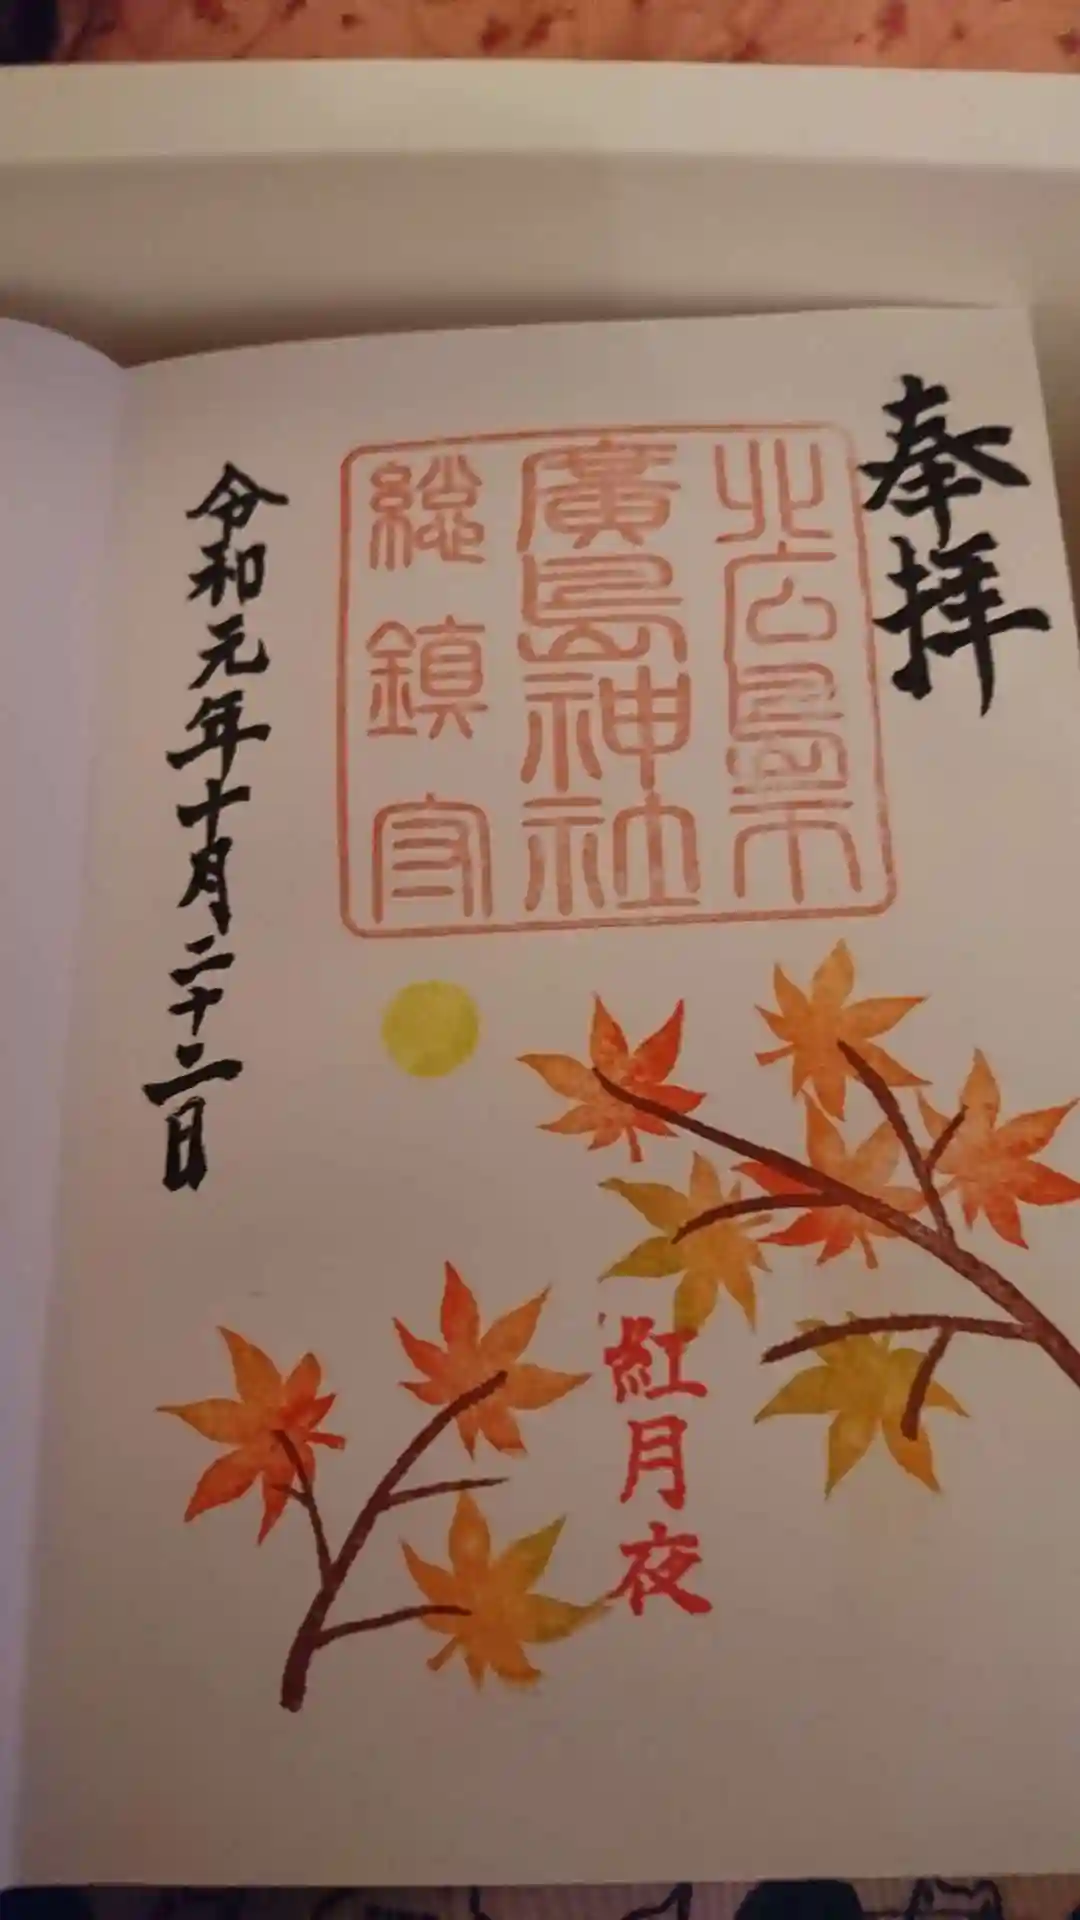 奉拝
北広島市
廣島神社
総鎮守
紅月夜
令和元年十月二十二日